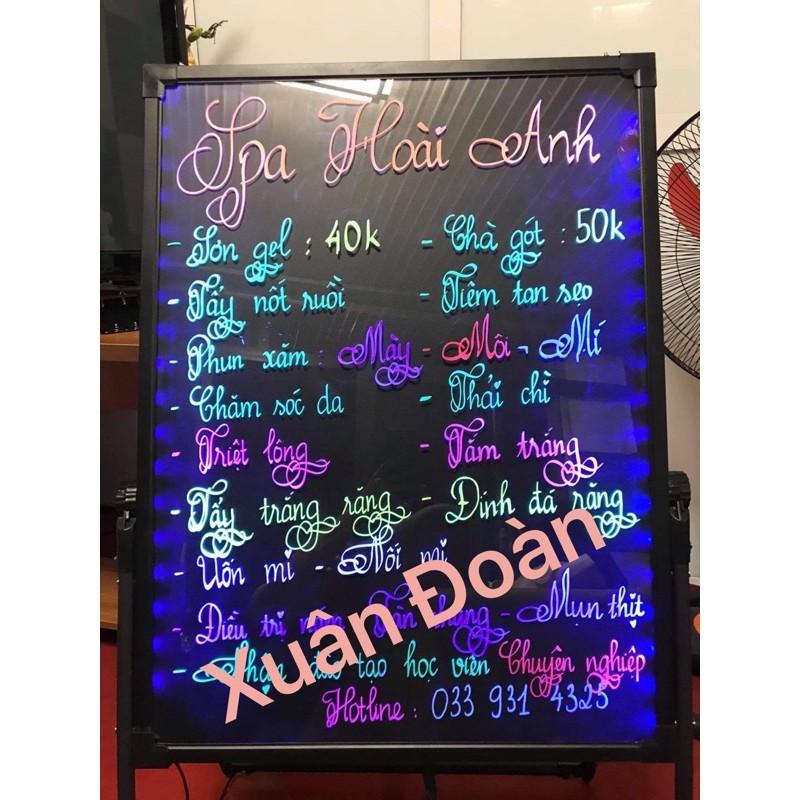 Spa Hoài Anh
- Sơn gel : 40k - Chà gót : 50k
- Tẩy nốt ruồi - Tiêm tan sẹo
- Phun xăm : Mày - Môi - Mí
- Chăm sóc da - Thải chì
- Triệt lông - Tắm trắng
- Tẩy trắng răng - Đính đá răng
- Uốn mi - Nối mi
- Điều trị nám - Tàn nhang - Mụn thịt
- Nhận đào tạo học viên Chuyên nghiệp
Hotline : 033 931 4325
Xuân Đoàn